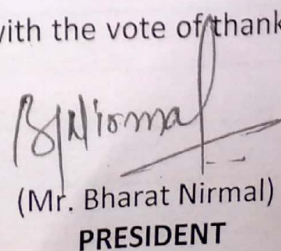 with the vote of thank
BjNirmal
(Mr. Bharat Nirmal)
PRESIDENT